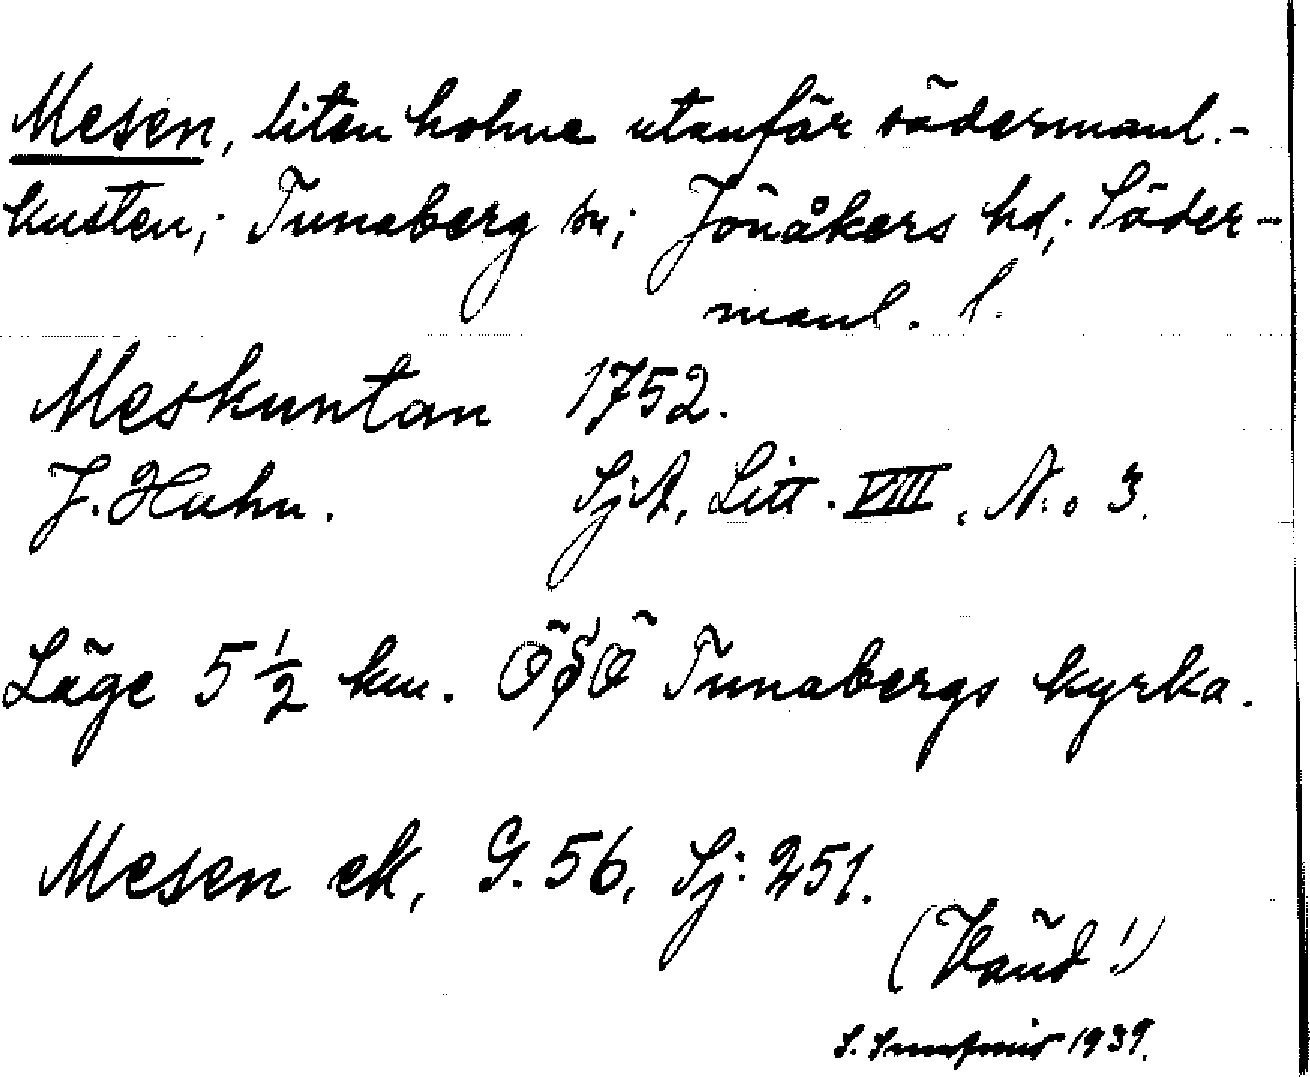 Mesen, liten holme utanför södermanl.-
kusten; Tunaberg sn; Jönåkers hd; Söder-
manl. l.
Meskuntan 1752.
J. Hahn. SjA, Litt. VIII. N:o 3.
Läge 5 1/2 km. ÖSÖ Tunabergs kyrka.
Mesen ek, G. 56, Sj: 251.
(Vänd!)
S. 1939.